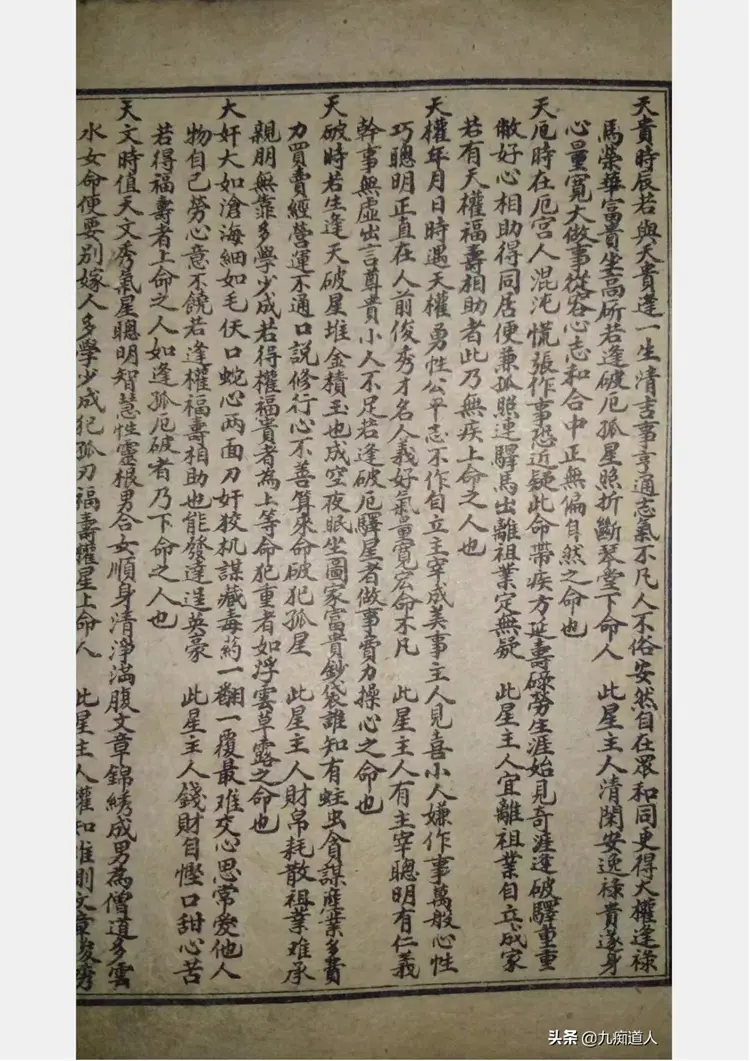 天貴時辰若與天貴逢一生清吉事亨通志氣不凡人不俗安然自在眾和同更得大權逢祿
馬榮華富貴坐高所若逢破厄孤星照折斷琴堂下命人 此星主人清閑安逸祿貴遂身
心量寬大做事從容心志和合中正無偏自然之命也
天厄時在厄宮人混沌慌張作事愁近疑此命帶疾方延壽碌勞生涯始見奇涯逢破驛重重
敝好心相助得同居便兼孤照連驛馬出離祖業定無疑 此星主人宜離祖業自立成家
若有天權福壽相助者此乃無疾上命之人也
天權年月日時遇天權勇性公平志不作自立主宰成美事主人見喜小人嫌作事萬般心性
巧聰明正直在人前俊秀才名人義好氣量寬宏命不凡 此星主人有主宰聰明有仁義
幹事無虛出言尊貴小人不足若逢破厄驛星者做事費力操心之命也
天破時若生逢天破星堆金積玉也成空夜眠坐圖家富貴鈔袋誰知有蛀虫貪謀產業多費
力買賣經營運不通口說修行心不善算來命破犯孤星 此星主人財帛耗散祖業难承
親朋無靠多學少成若得權福貴者為上等命犯重者如浮雲草露之命也
大奸大如滄海細如毛伏口蛇心两面刀奸狡机謀藏毒药一翻一覆最难交心思常爱他人
物自己勞心意不饒若逢權福壽相助也能發達逞英豪 此星主人錢財自慳口甜心苦
若得福壽者上命之人如逢孤厄破者乃下命之人也
天文時值天文秀氣星聰明智慧性靈根男合女順身清淨滿腹文章錦綉成男為僧道多雲
水女命便要别嫁人多學少成犯孤刃福壽權星上命人 此星主人權知惟則文章俊秀
头条 @九痴道人